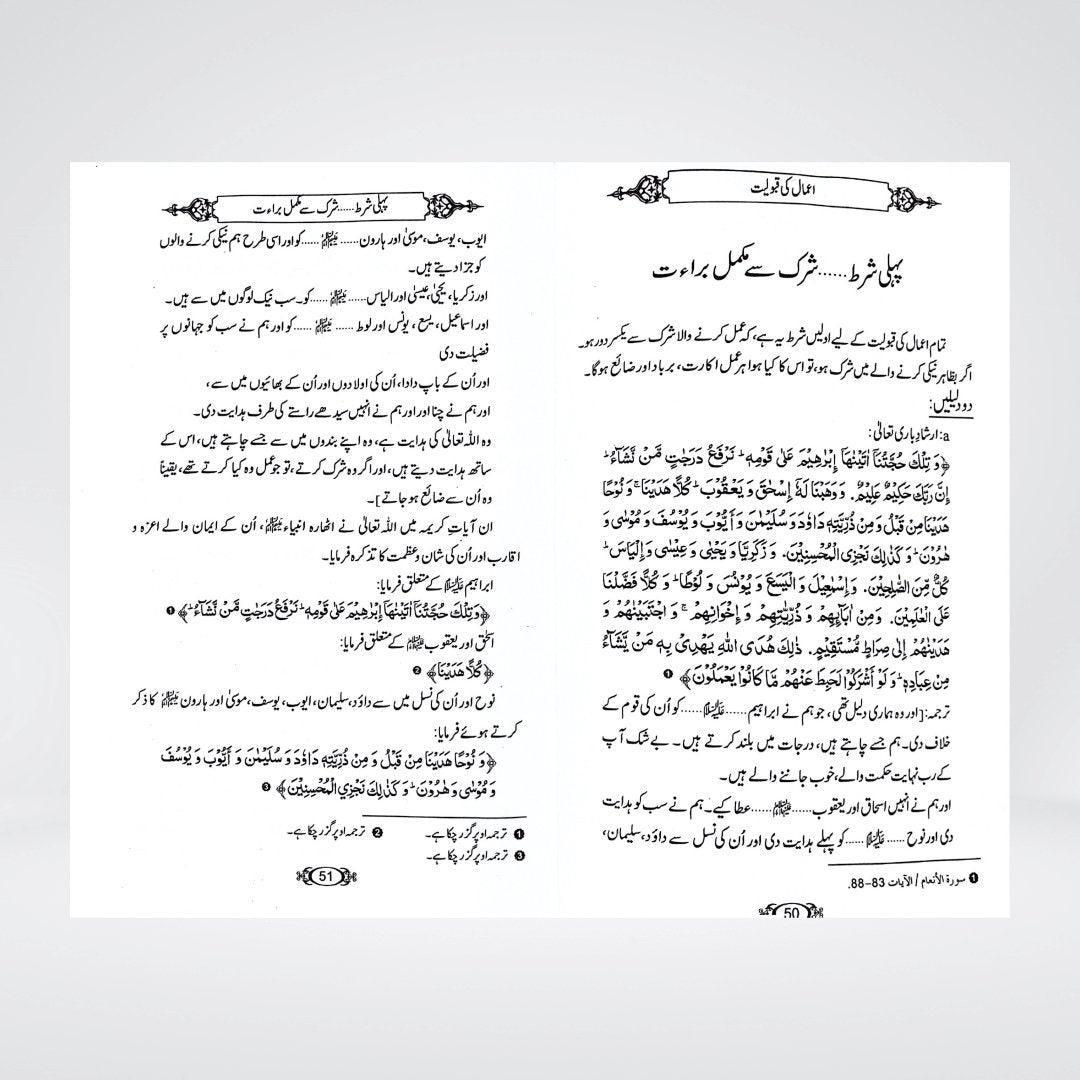 اعمال کی قبولیت
پہلی شرط......شرک سے مکمل براءت
تمام اعمال کی قبولیت کے لیے اولیں شرط یہ ہے، کہ عمل کرنے والا شرک سے یکسر دور ہو۔
اگر بظاہر نیکی کرنے والے میں شرک ہو، تو اس کا کیا ہوا ہر عمل اکارت، برباد اور ضائع ہوگا۔
دو دلیلیں:
a: ارشادِ باری تعالیٰ:
﴿وَ تِلْكَ حُجَّتُنَآ اٰتَيْنٰهَآ اِبْرٰهِيْمَ عَلٰى قَوْمِهٖ ؕ نَرْفَعُ دَرَجٰتٍ مَّنْ نَّشَآءُ ؕ
اِنَّ رَبَّكَ حَكِيْمٌ عَلِيْمٌ. وَ وَهَبْنَا لَهٗٓ اِسْحٰقَ وَ يَعْقُوْبَ ؕ كُلًّا هَدَيْنَا ۚ وَ نُوْحًا
هَدَيْنَا مِنْ قَبْلُ وَ مِنْ ذُرِّيَّتِهٖ دَاوٗدَ وَ سُلَيْمٰنَ وَ اَيُّوْبَ وَ يُوْسُفَ وَ مُوْسٰى وَ
هٰرُوْنَ ؕ وَ كَذٰلِكَ نَجْزِي الْمُحْسِنِيْنَ. وَ زَكَرِيَّا وَ يَحْيٰى وَ عِيْسٰى وَ اِلْيَاسَ ؕ
كُلٌّ مِّنَ الصّٰلِحِيْنَ. وَ اِسْمٰعِيْلَ وَ الْيَسَعَ وَ يُوْنُسَ وَ لُوْطًا ؕ وَ كُلًّا فَضَّلْنَا
عَلَى الْعٰلَمِيْنَ. وَ مِنْ اٰبَآئِهِمْ وَ ذُرِّيّٰتِهِمْ وَ اِخْوَانِهِمْ ۚ وَ اجْتَبَيْنٰهُمْ وَ
هَدَيْنٰهُمْ اِلٰى صِرَاطٍ مُّسْتَقِيْمٍ. ذٰلِكَ هُدَى اللّٰهِ يَهْدِيْ بِهٖ مَنْ يَّشَآءُ
مِنْ عِبَادِهٖ ؕ وَ لَوْ اَشْرَكُوْا لَحَبِطَ عَنْهُمْ مَّا كَانُوْا يَعْمَلُوْنَ﴾ ❶
ترجمہ:[اور وہ ہماری دلیل تھی، جو ہم نے ابراہیم......علیہ السلام......کو اُن کی قوم کے
خلاف دی۔ ہم جسے چاہتے ہیں، درجات میں بلند کرتے ہیں۔ بے شک آپ
کے رب نہایت حکمت والے، خوب جاننے والے ہیں۔
اور ہم نے انہیں اسحاق اور یعقوب......علیہما السلام......عطا کیے۔ ہم نے سب کو ہدایت
دی اور نوح......علیہ السلام......کو پہلے ہدایت دی اور اُن کی نسل سے داؤد، سلیمان،
❶ سورة الأنعام / الآيات 83-88.
50
پہلی شرط......شرک سے مکمل براءت
ایوب، یوسف، موسیٰ اور ہارون......علیہم السلام......کو اور اسی طرح ہم نیکی کرنے والوں
کو جزا دیتے ہیں۔
اور زکریا، یحییٰ، عیسیٰ اور الیاس......علیہم السلام......کو۔ سب نیک لوگوں میں سے ہیں۔
اور اسماعیل، یسع، یونس اور لوط......علیہم السلام......کو اور ہم نے سب کو جہانوں پر
فضیلت دی
اور اُن کے باپ دادا، اُن کی اولادوں اور اُن کے بھائیوں میں سے،
اور ہم نے چنا اور اور ہم نے انہیں سیدھے راستے کی طرف ہدایت دی۔
وہ اللہ تعالیٰ کی ہدایت ہے، وہ اپنے بندوں میں سے جسے چاہتے ہیں، اس کے
ساتھ ہدایت دیتے ہیں، اور اگر وہ شرک کرتے، تو جو عمل وہ کیا کرتے تھے، یقیناً
وہ اُن سے ضائع ہو جاتے]۔
ان آیاتِ کریمہ میں اللہ تعالیٰ نے اٹھارہ انبیاء علیہم السلام، اُن کے ایمان والے اعزہ و
اقارب اور اُن کی شان و عظمت کا تذکرہ فرمایا۔
ابراہیم علیہ السلام کے متعلق فرمایا:
﴿وَ تِلْكَ حُجَّتُنَآ اٰتَيْنٰهَآ اِبْرٰهِيْمَ عَلٰى قَوْمِهٖ ؕ نَرْفَعُ دَرَجٰتٍ مَّنْ نَّشَآءُ ؕ﴾ ❶
اسحٰق اور یعقوب علیہما السلام کے متعلق فرمایا:
﴿كُلًّا هَدَيْنَا﴾ ❷
نوح اور اُن کی نسل میں سے داؤد، سلیمان، ایوب، یوسف، موسیٰ اور ہارون علیہم السلام کا ذکر
کرتے ہوئے فرمایا:
﴿وَ نُوْحًا هَدَيْنَا مِنْ قَبْلُ وَ مِنْ ذُرِّيَّتِهٖ دَاوٗدَ وَ سُلَيْمٰنَ وَ اَيُّوْبَ وَ يُوْسُفَ
وَ مُوْسٰى وَ هٰرُوْنَ ؕ وَ كَذٰلِكَ نَجْزِي الْمُحْسِنِيْنَ﴾ ❸
❶ ترجمہ اوپر گزر چکا ہے۔ ❷ ترجمہ اوپر گزر چکا ہے۔
❸ ترجمہ اوپر گزر چکا ہے۔
51